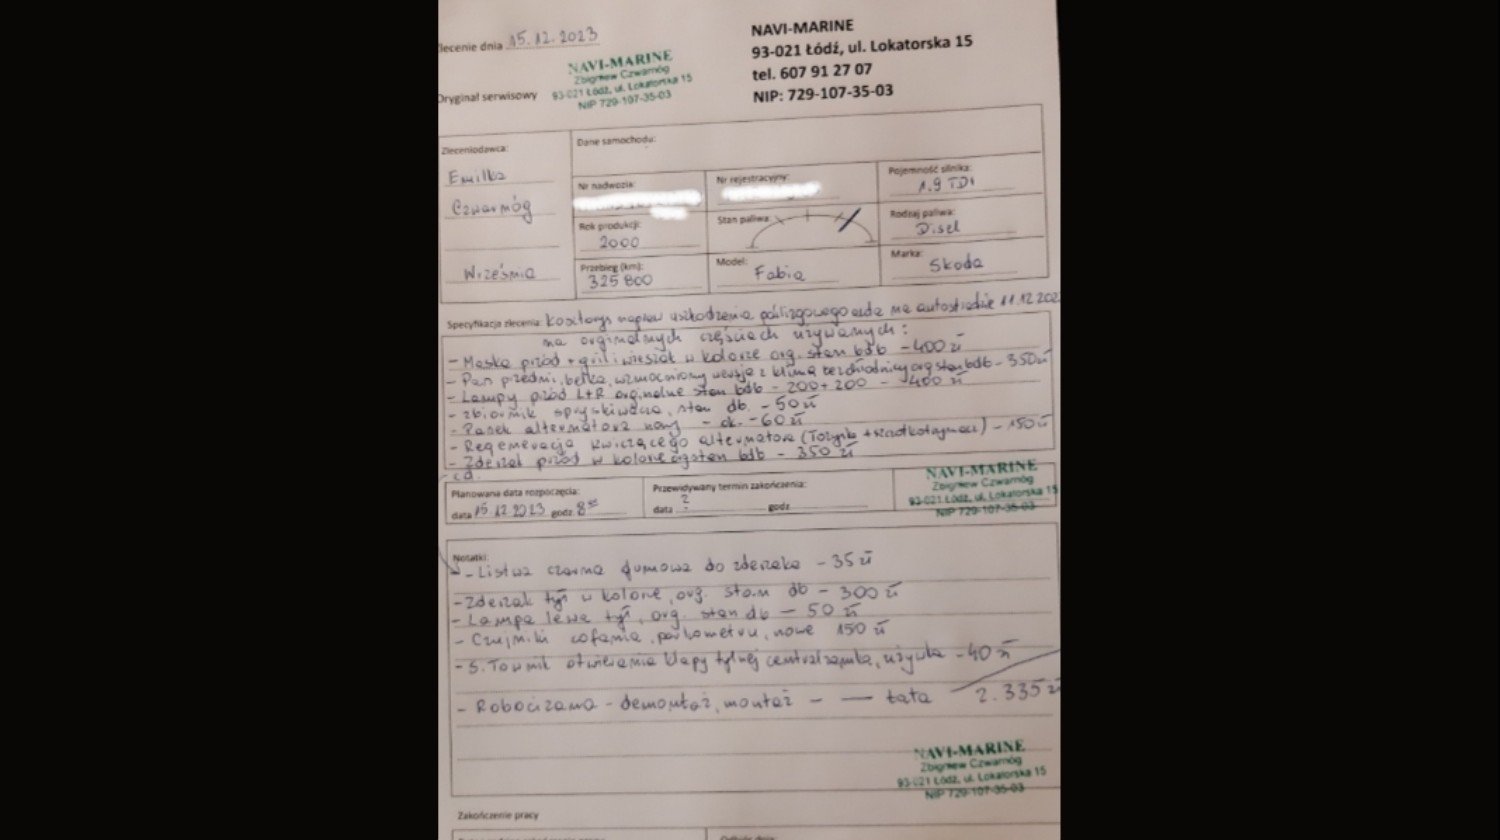 Zlecenie dnia 15.12.2023
NAVI-MARINE
93-021 Łódź, ul. Lokatorska 15
tel. 607 91 27 07
NIP: 729-107-35-03
NAVI-MARINE
Zbigniew Czwarnóg
93-021 Łódź, ul. Lokatorska 15
NIP 729-107-35-03
Oryginał serwisowy
Zleceniodawca:
Emilka
Czwarnóg
Września
Dane samochodu:
Nr nadwozia:
Nr rejestracyjny:
Pojemność silnika:
1.9 TDI
Rok produkcji:
2000
Stan paliwa:
Rodzaj paliwa:
Disel
Przebieg (km):
325800
Model:
Fabia
Marka:
Skoda
Specyfikacja zlecenia: Kosztorys napraw uszkodzenia poślizgowego auta na autostradzie 11.12.202
na orginalnych częściach używanych:
- Maska przód + gril i wieszak w kolorze org. stan bdb - 400 zł
- Pas przedni, belka, wzmocniony wersja z klimą bez chłodnicy org stan bdb - 350 zł
- Lampy przód L+R orginalne stan bdb - 200+200 - 400 zł
- zbiornik spryskiwacza, stan db. - 50 zł
- Pasek alternatora nowy - ok. - 60 zł
- Regeneracja kwiczącego alternatora (Łożyska + szczotkotrzymacz) - 150 zł
- Zderzak przód w kolorze org stan bdb - 350 zł
c.d.
Planowana data rozpoczęcia:
data 15 12 2023 godz 8⁰⁰
Przewidywany termin zakończenia:
data ? godz
NAVI-MARINE
Zbigniew Czwarnóg
93-021 Łódź, ul. Lokatorska 15
NIP 729-107-35-03
Notatki:
- Listwa czarna gumowa do zderzaka - 35 zł
- Zderzak tył w kolorze, org. stan db - 300 zł
- Lampa lewa tył, org. stan db - 50 zł
- Czujniki cofania, parkometru, nowe 150 zł
- Siłownik otwierania klapy tylnej centralzamka, używka - 40 zł
- Robocizna - demontaż, montaż - — tata 2.335 zł
NAVI-MARINE
Zbigniew Czwarnóg
93-021 Łódź, ul. Lokatorska 15
NIP 729-107-35-03
Zakończenie pracy